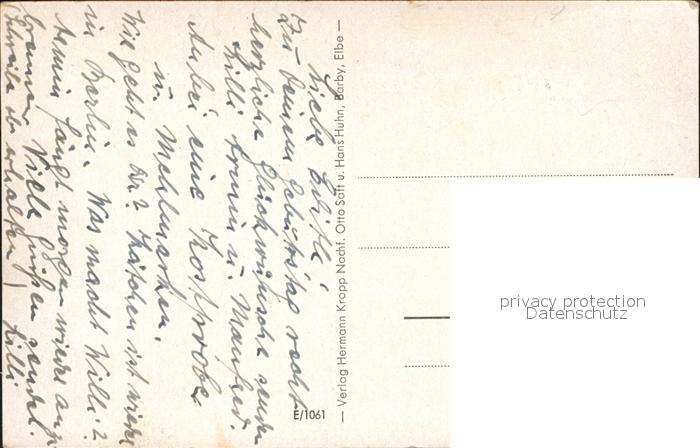 Liebe
Zu deinem Geburtstag recht
herzliche Glückwünsche senden
Lilli Armin u. Manfred.
Anbei eine Kostprobe
u.
Wie geht es Dir? Kätchen ist wieder
in Berlin. Was macht Willi?
Armin fängt morgen wieder an
Viele Grüße sendet
Lilli
Schreibe ob erhalten
— Verlag Hermann Kropp Nachf. Otto Saft u. Hans Huhn, Barby, Elbe —
E/1061
privacy protection
Datenschutz